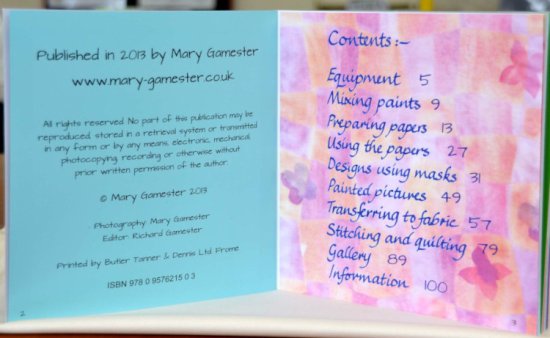 Published in 2013 by Mary Gamester
www.mary-gamester.co.uk
All rights reserved. No part of this publication may be
reproduced, stored in a retrieval system or transmitted
in any form or by any means, electronic, mechanical,
photocopying, recording or otherwise without
prior written permission of the author.
© Mary Gamester 2013
Photography: Mary Gamester
Editor: Richard Gamester
Printed by Butler Tanner & Dennis Ltd. Frome
ISBN 978 0 9576215 0 3
2
Contents:-
Equipment 5
Mixing paints 9
Preparing papers 13
Using the papers 27
Designs using masks 31
Painted pictures 49
Transferring to fabric 57
Stitching and quilting 79
Gallery 89
Information 100
3